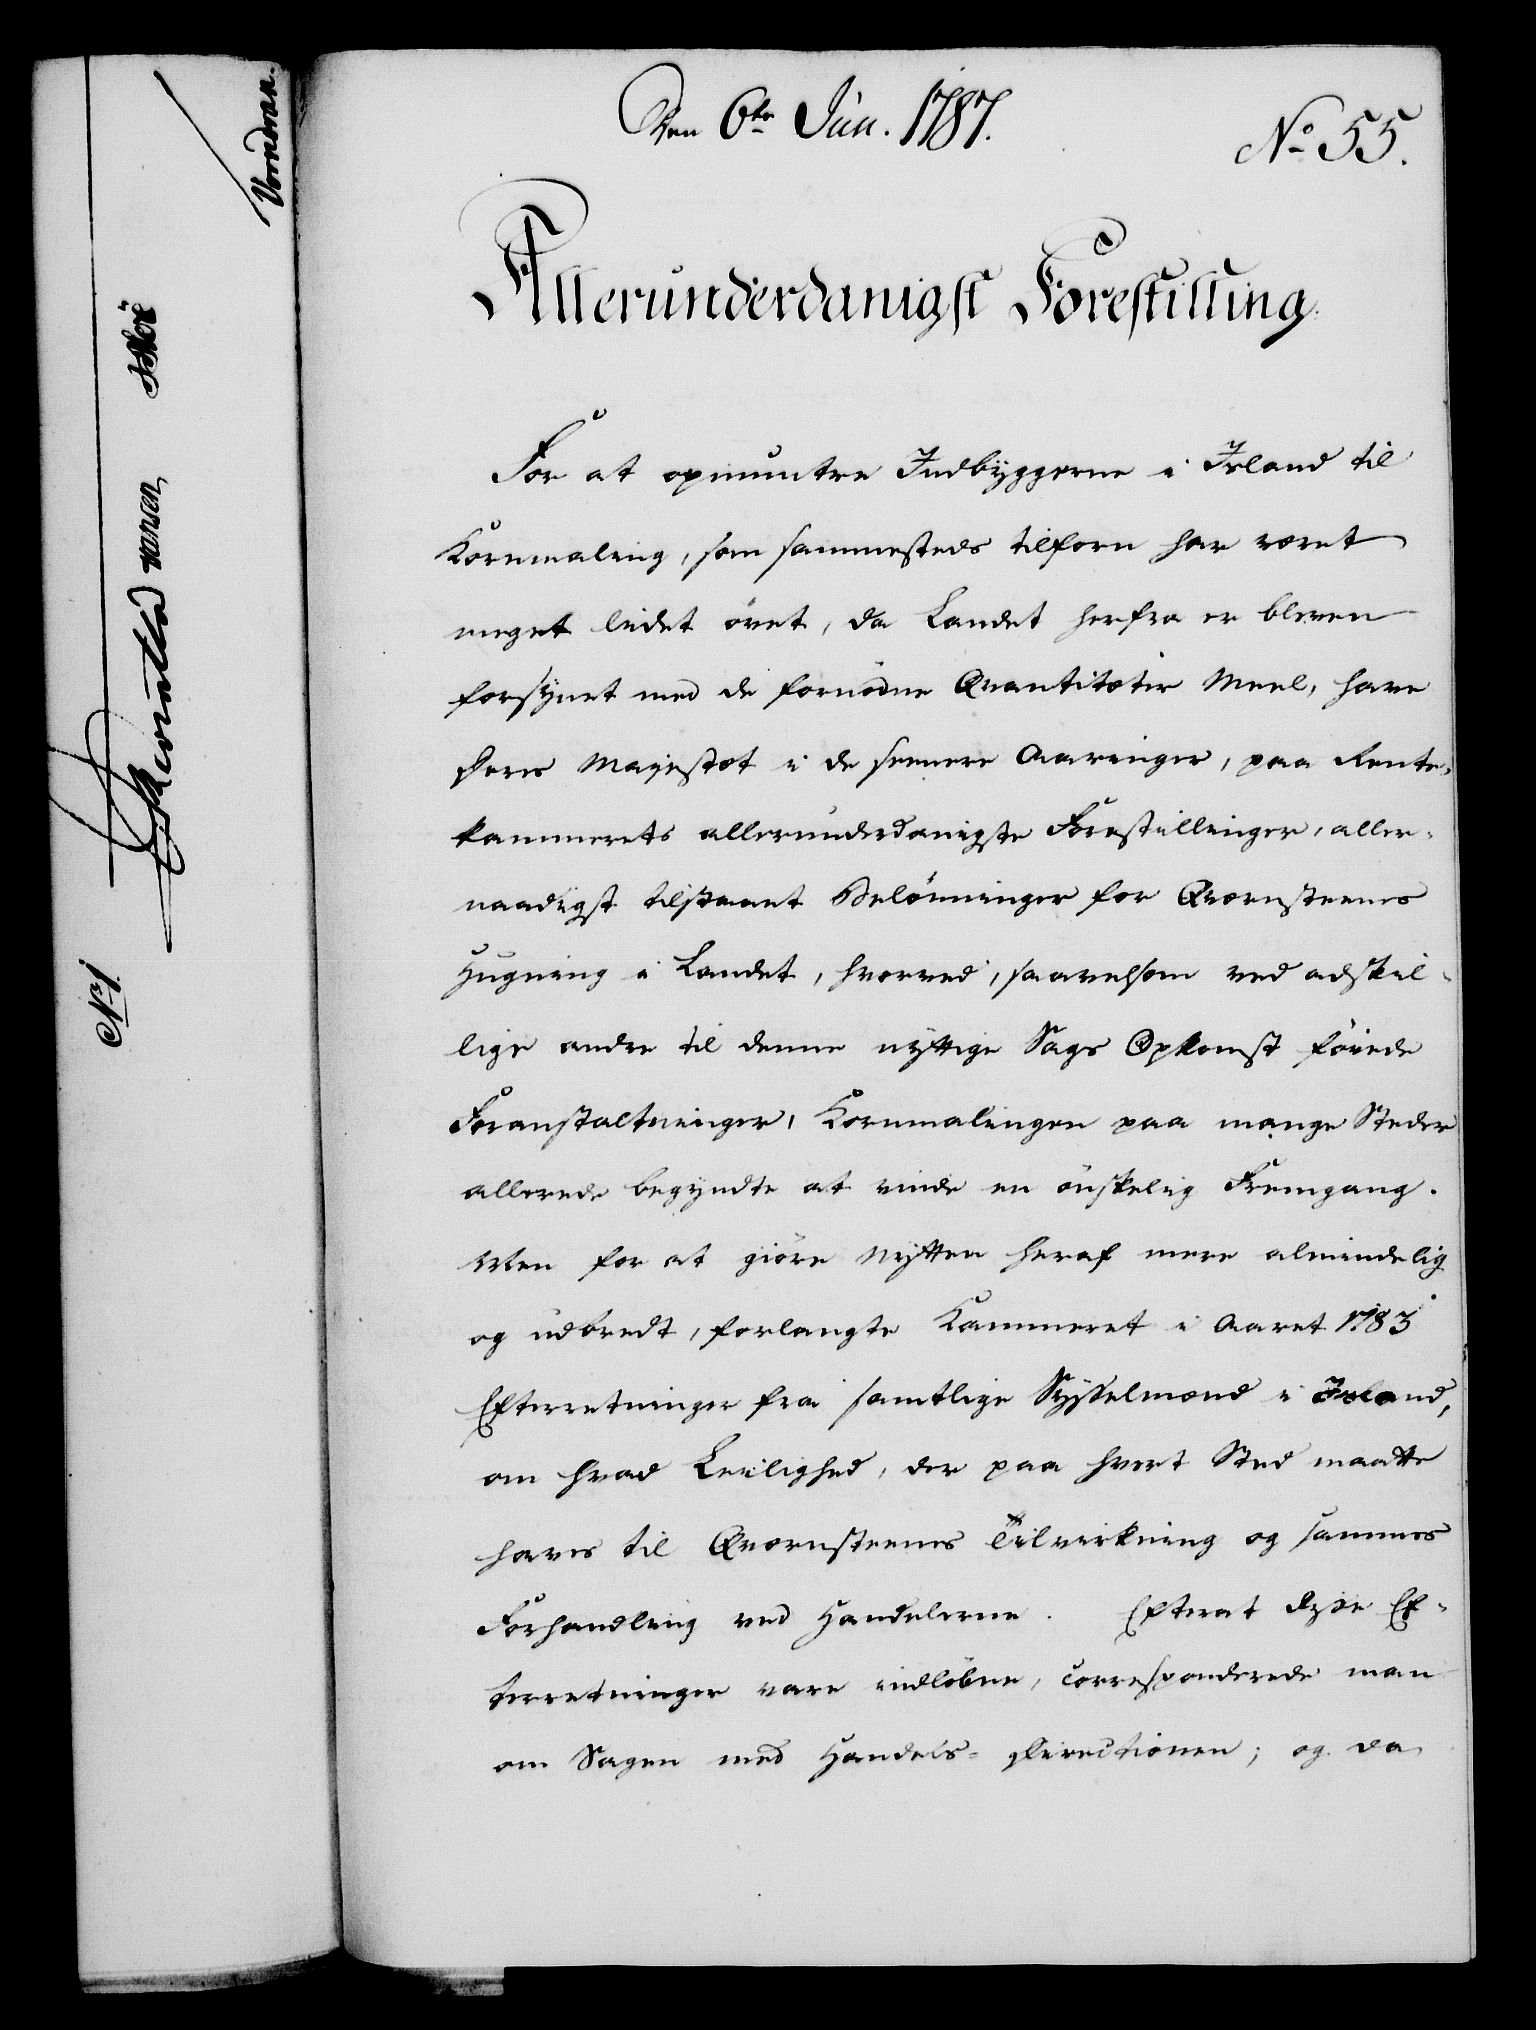 Den 6te Jun. 1787.
No 55.
Allerunderdanigst Forestilling.
For at opmuntre Indbyggerne i Island til
Kornmaling, som sammesteds tilforn har været
meget lidet øvet, da Landet herfra er bleven
forsynet med de fornødne Qvantiteter Meel, have
Deres Majestæt i de seenere Aaringer, paa Rente-
kammerets allerunderdanigste Forestillinger, aller-
naadigst tilstaaet Belønninger for Qværnsteenes
Hugning i Landet, hvorved, saavelsom ved adskil-
lige andre til denne nyttige Sags Opkomst føiede
Foranstaltninger, Kornmalingen paa mange Steder
allerede begyndte at vinde en ønskelig Fremgang.
Men for at giøre Nytten heraf mere almindelig
og udbredt, forlangte Kammeret i Aaret 1783
Efterretninger fra samtlige Sysselmænd i Island,
om hvad Leilighed, der paa hvert Sted maatte
haves til Qværnsteenes Tilvirkning og sammes
Forhandling ved Handelerne. Efterat disse Ef-
terretninger vare indløbne, correspenderede man
om Sagen med Handels- Directionen; og da
No 1